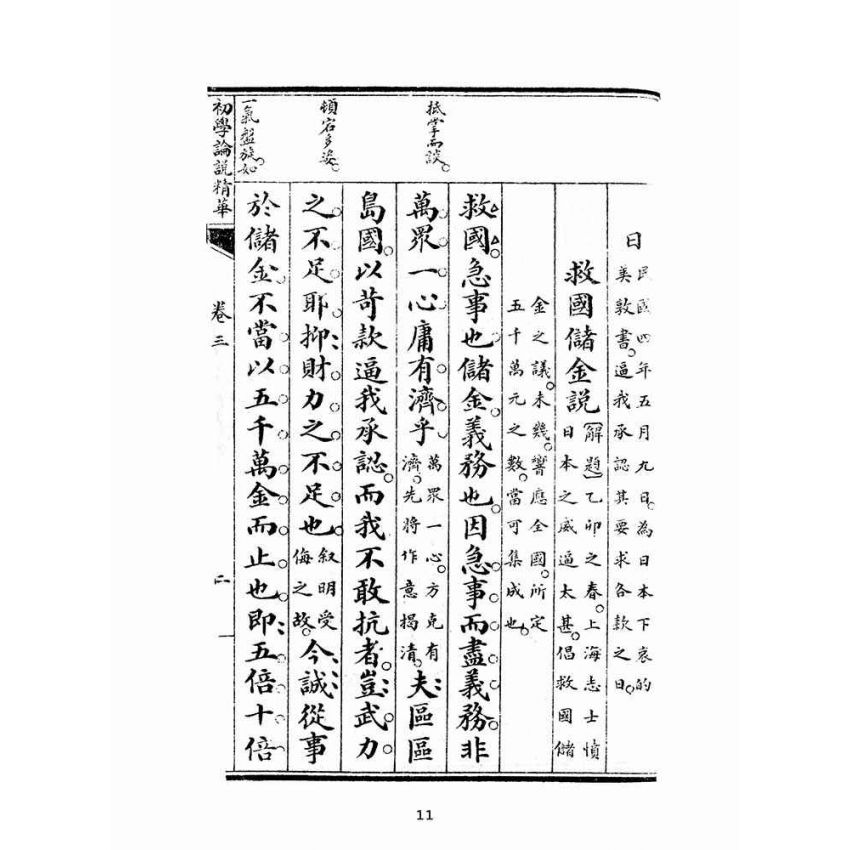 抵掌而談。
頓宕多姿。
一氣盤旋如
日
民國四年五月九日。為日本下哀的
美敦書。逼我承認其要求各款之日。
救國儲金説
(解題)乙卯之春。上海志士憤
日本之威逼太甚。倡救國儲
金之議。未幾。響應全國。所定
五千萬元之數。當可集成也。
救國。急事也。儲金。義務也。因急事而盡義務。非
萬眾一心。庸有濟乎
萬眾一心。方克有
濟。先將作意揭清。
夫區區
島國。以苛款逼我承認。而我不敢抗者。豈武力
之不足耶。抑財力之不足也。
叙明受
侮之故。
今誠從事
於儲金。不當以五千萬金而止也。即五倍十倍
初學論説精華
卷三
二
11